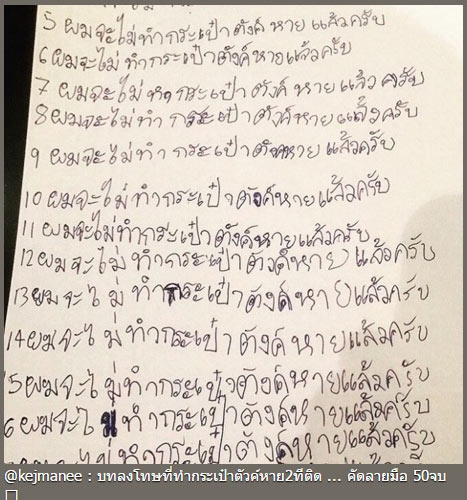 5 ผมจะไม่ทำกระเป๋าตังค์หายแล้วครับ
6 ผมจะไม่ทำกระเป๋าตังค์หายแล้วครับ
7 ผมจะไม่ทำกระเป๋าตังค์หายแล้วครับ
8 ผมจะไม่ทำกระเป๋าตังค์หายแล้วครับ
9 ผมจะไม่ทำกระเป๋าตังค์หายแล้วครับ
10 ผมจะไม่ทำกระเป๋าตังค์หายแล้วครับ
11 ผมจะไม่ทำกระเป๋าตังค์หายแล้วครับ
12 ผมจะไม่ทำกระเป๋าตังค์หายแล้วครับ
13 ผมจะไม่ทำกระเป๋าตังค์หายแล้วครับ
14 ผมจะไม่ทำกระเป๋าตังค์หายแล้วครับ
15 ผมจะไม่ทำกระเป๋าตังค์หายแล้วครับ
6 ผมจะไม่ทำกระเป๋าตังค์หายแล้วครับ
@kejmanee : บทลงโทษที่ทำกระเป๋าตัวค์หาย2ทีติด ... คัดลายมือ 50จบ